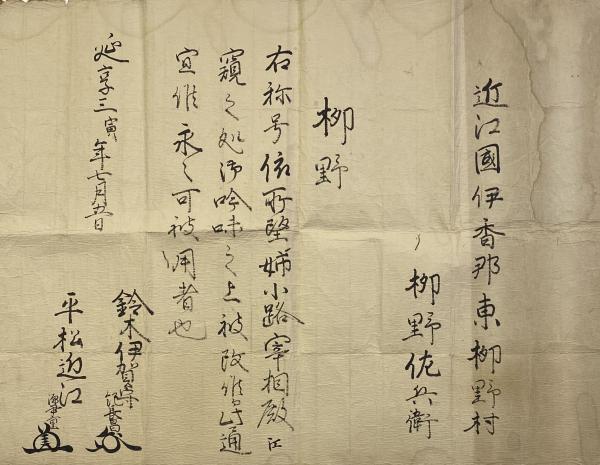 近江國伊香郡東柳野村
柳野佐兵衛
柳野
右称号依所望姉小路宰相殿江
窺之処御吟味之上被改候此通
宜候永々可被用者也
延享三寅年七月五日
鈴木伊賀守
平松近江